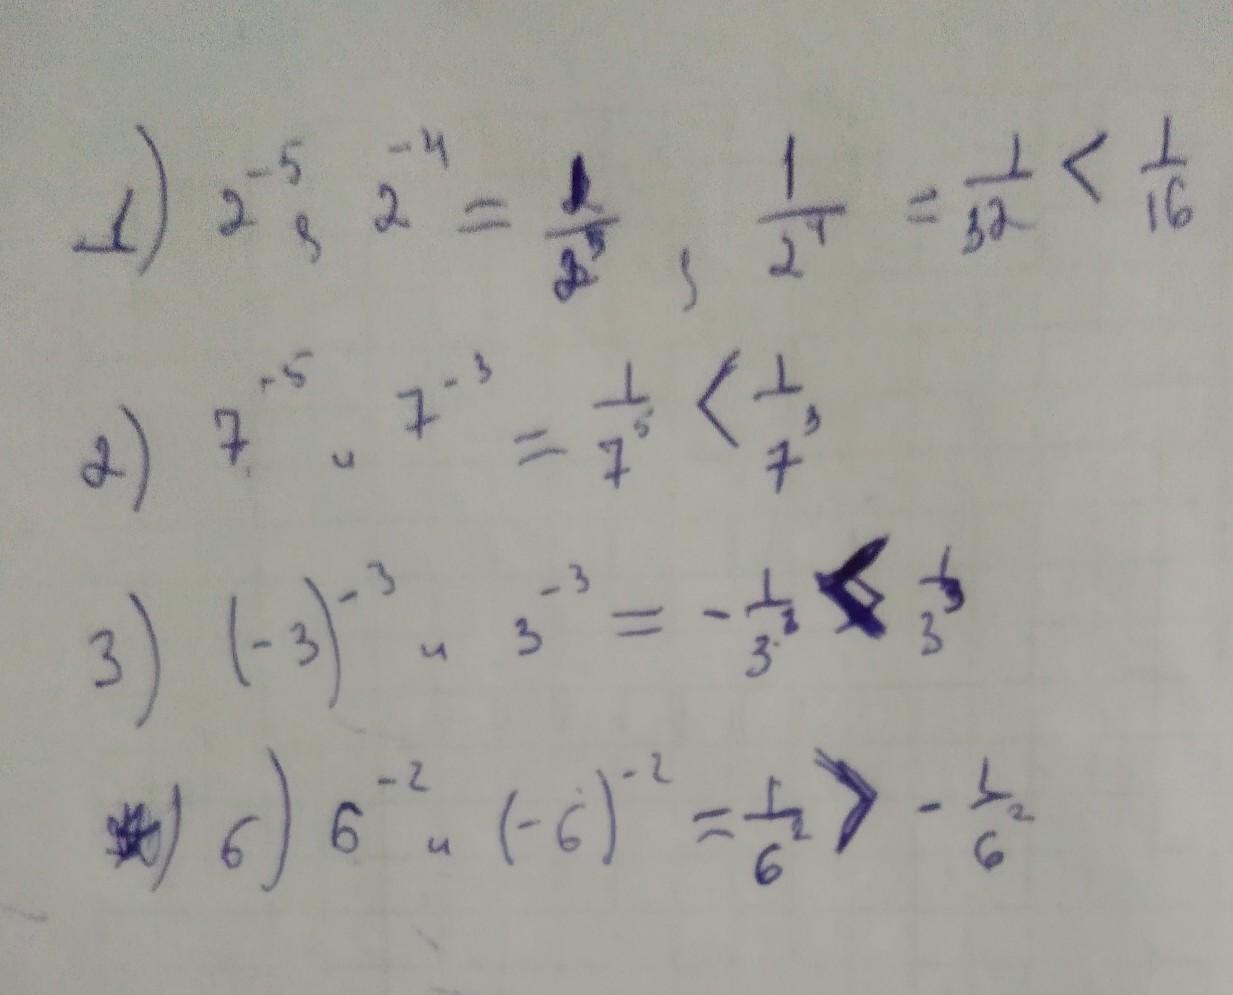 1) 2⁻⁵, 2⁻⁴ = 1/2⁵, 1/2⁴ = 1/32 < 1/16
2) 7⁻⁵ и 7⁻³ = 1/7⁵ < 1/7³
3) (-3)⁻³ и 3⁻³ = -1/3³ < 1/3³
) 6) 6⁻² и (-6)⁻² = 1/6² > -1/6²